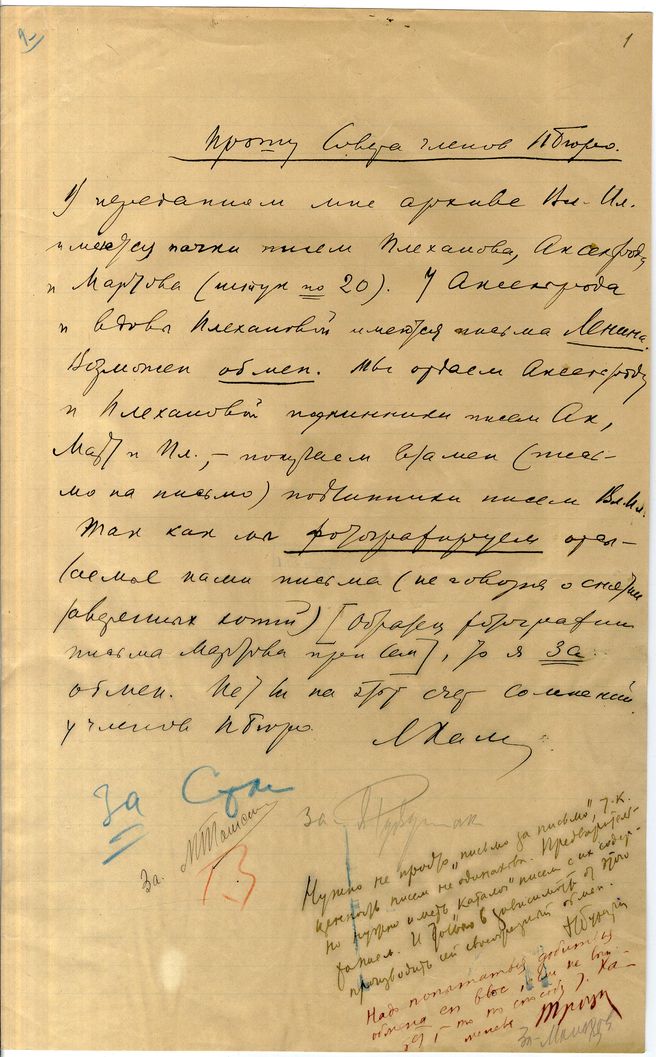 1
Прошу Совета членов ПБюро.
В переданном мне архиве Вл. Ил.
имеются пачки писем Плеханова, Аксельрода
и Мартова (штук по 20). У Аксельрода
и вдовы Плехановой имеются письма Ленина.
Возможен обмен. Мы отдаем Аксельроду
и Плехановой подлинники писем Ак,
Март и Пл., – получаем взамен (пись-
мо на письмо) подлинники писем Вл.Ил.
Так как мы фотографируем отсы-
лаемые нами письма (не говоря о снятии
заверенных копий) [образец фотографии
письма Мартова при сем], то я за
обмен. Нет ли на этот счет сомнений
у членов ПБюро.
ЛКам
За Ст
За. МТомский
За Рудзутак
Нужно не просто „письмо за письмо", т.к.
ценность писем не одинакова. Предваритель-
но нужно иметь каталог писем с их содер-
жанием. И только в зависимости от этого
производить сей своеобразный обмен.
НБухарин
Надо попытаться добиться
обмена en bloc, если не выйдет
то по способу т. Ка-
менева Троцк
За Молотов